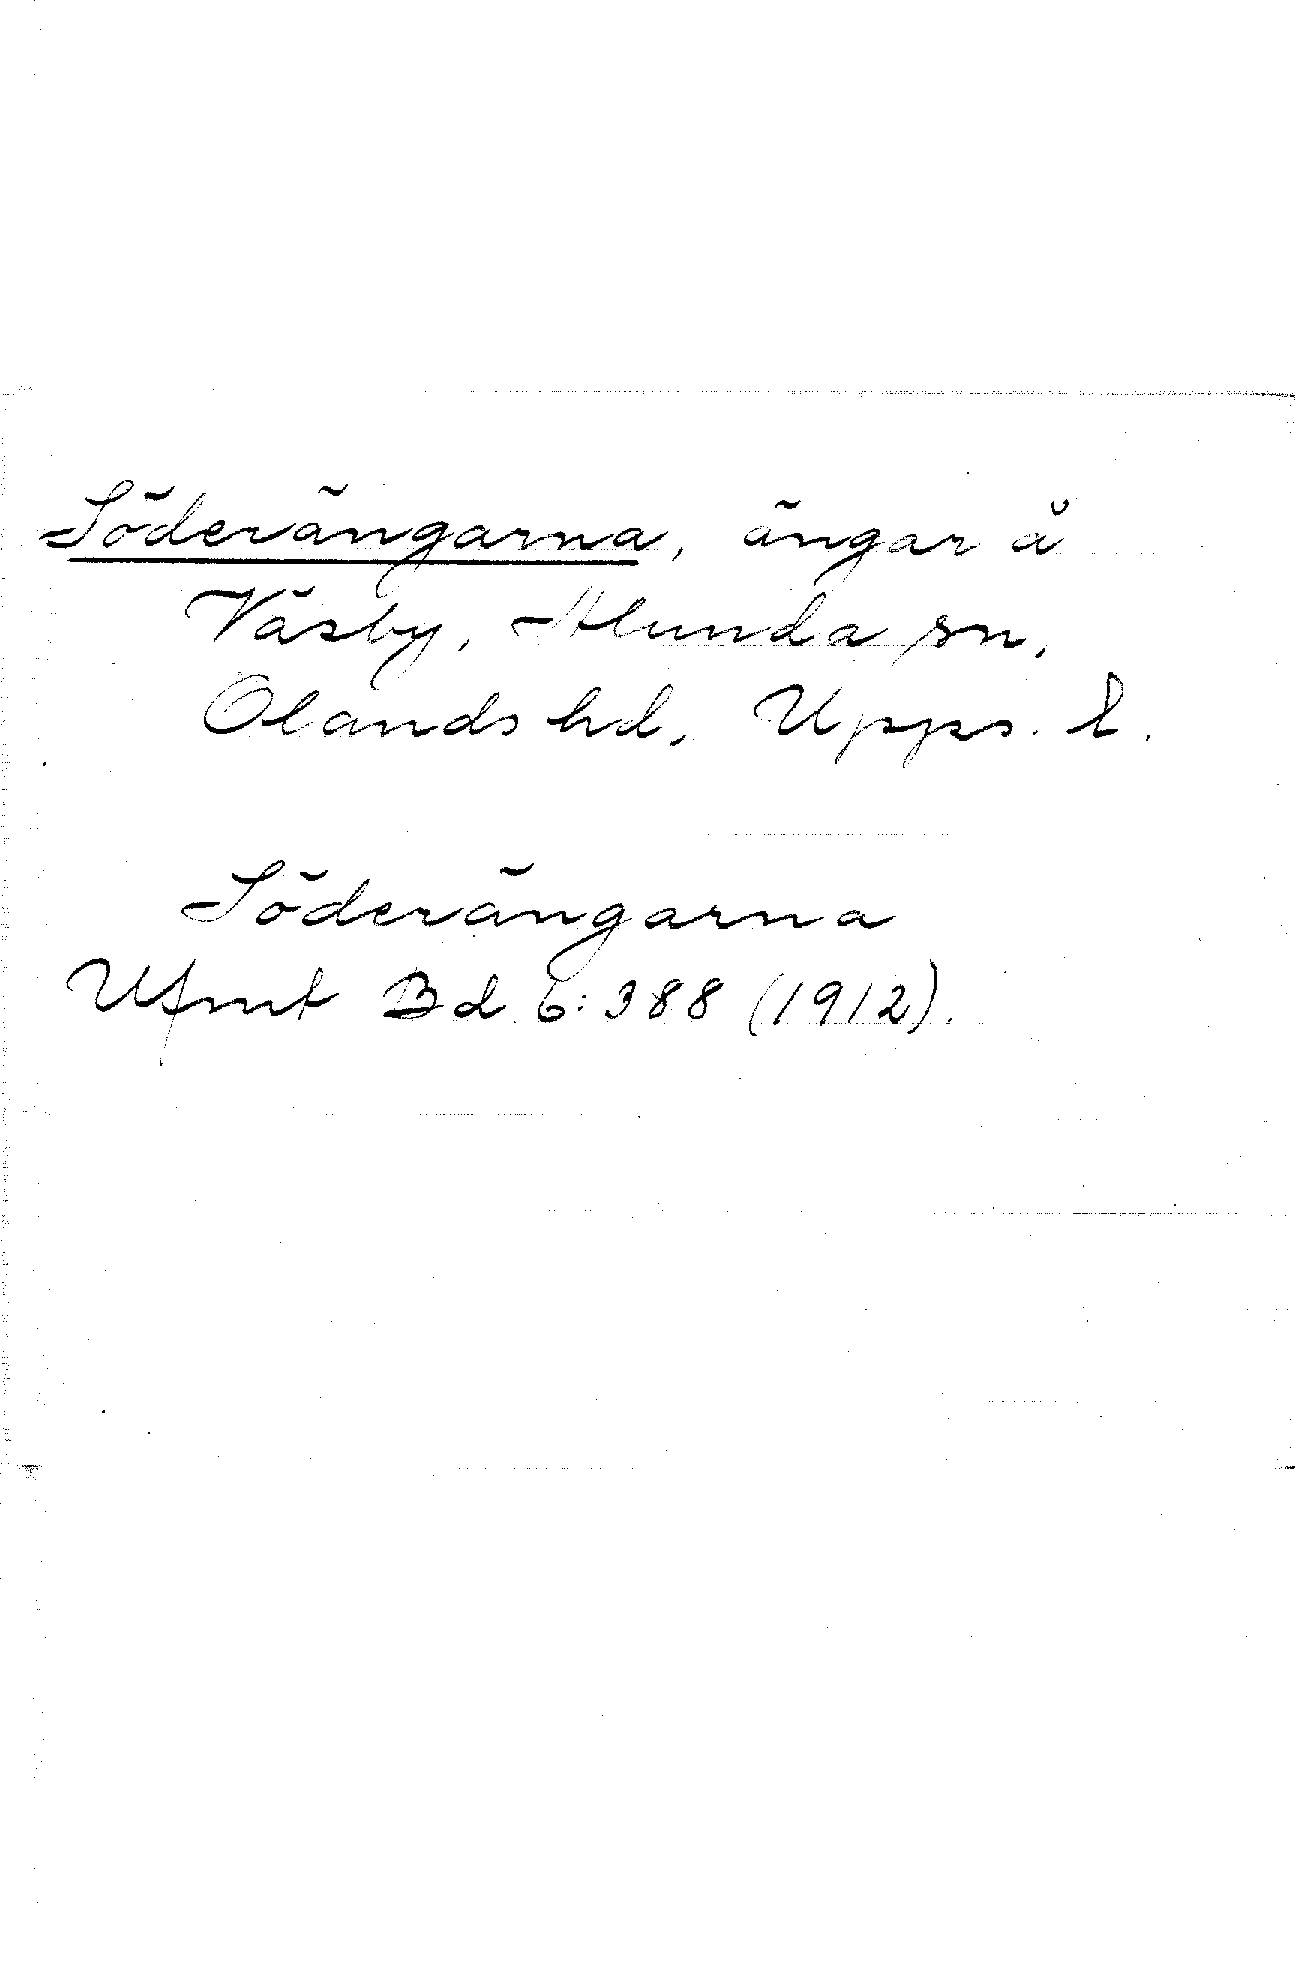 Söderängarna, ängar å
Väsby, Alunda sn,
Olands hd, Upps. l.
Söderängarna
Ufmt Bd 6:388 (1912).